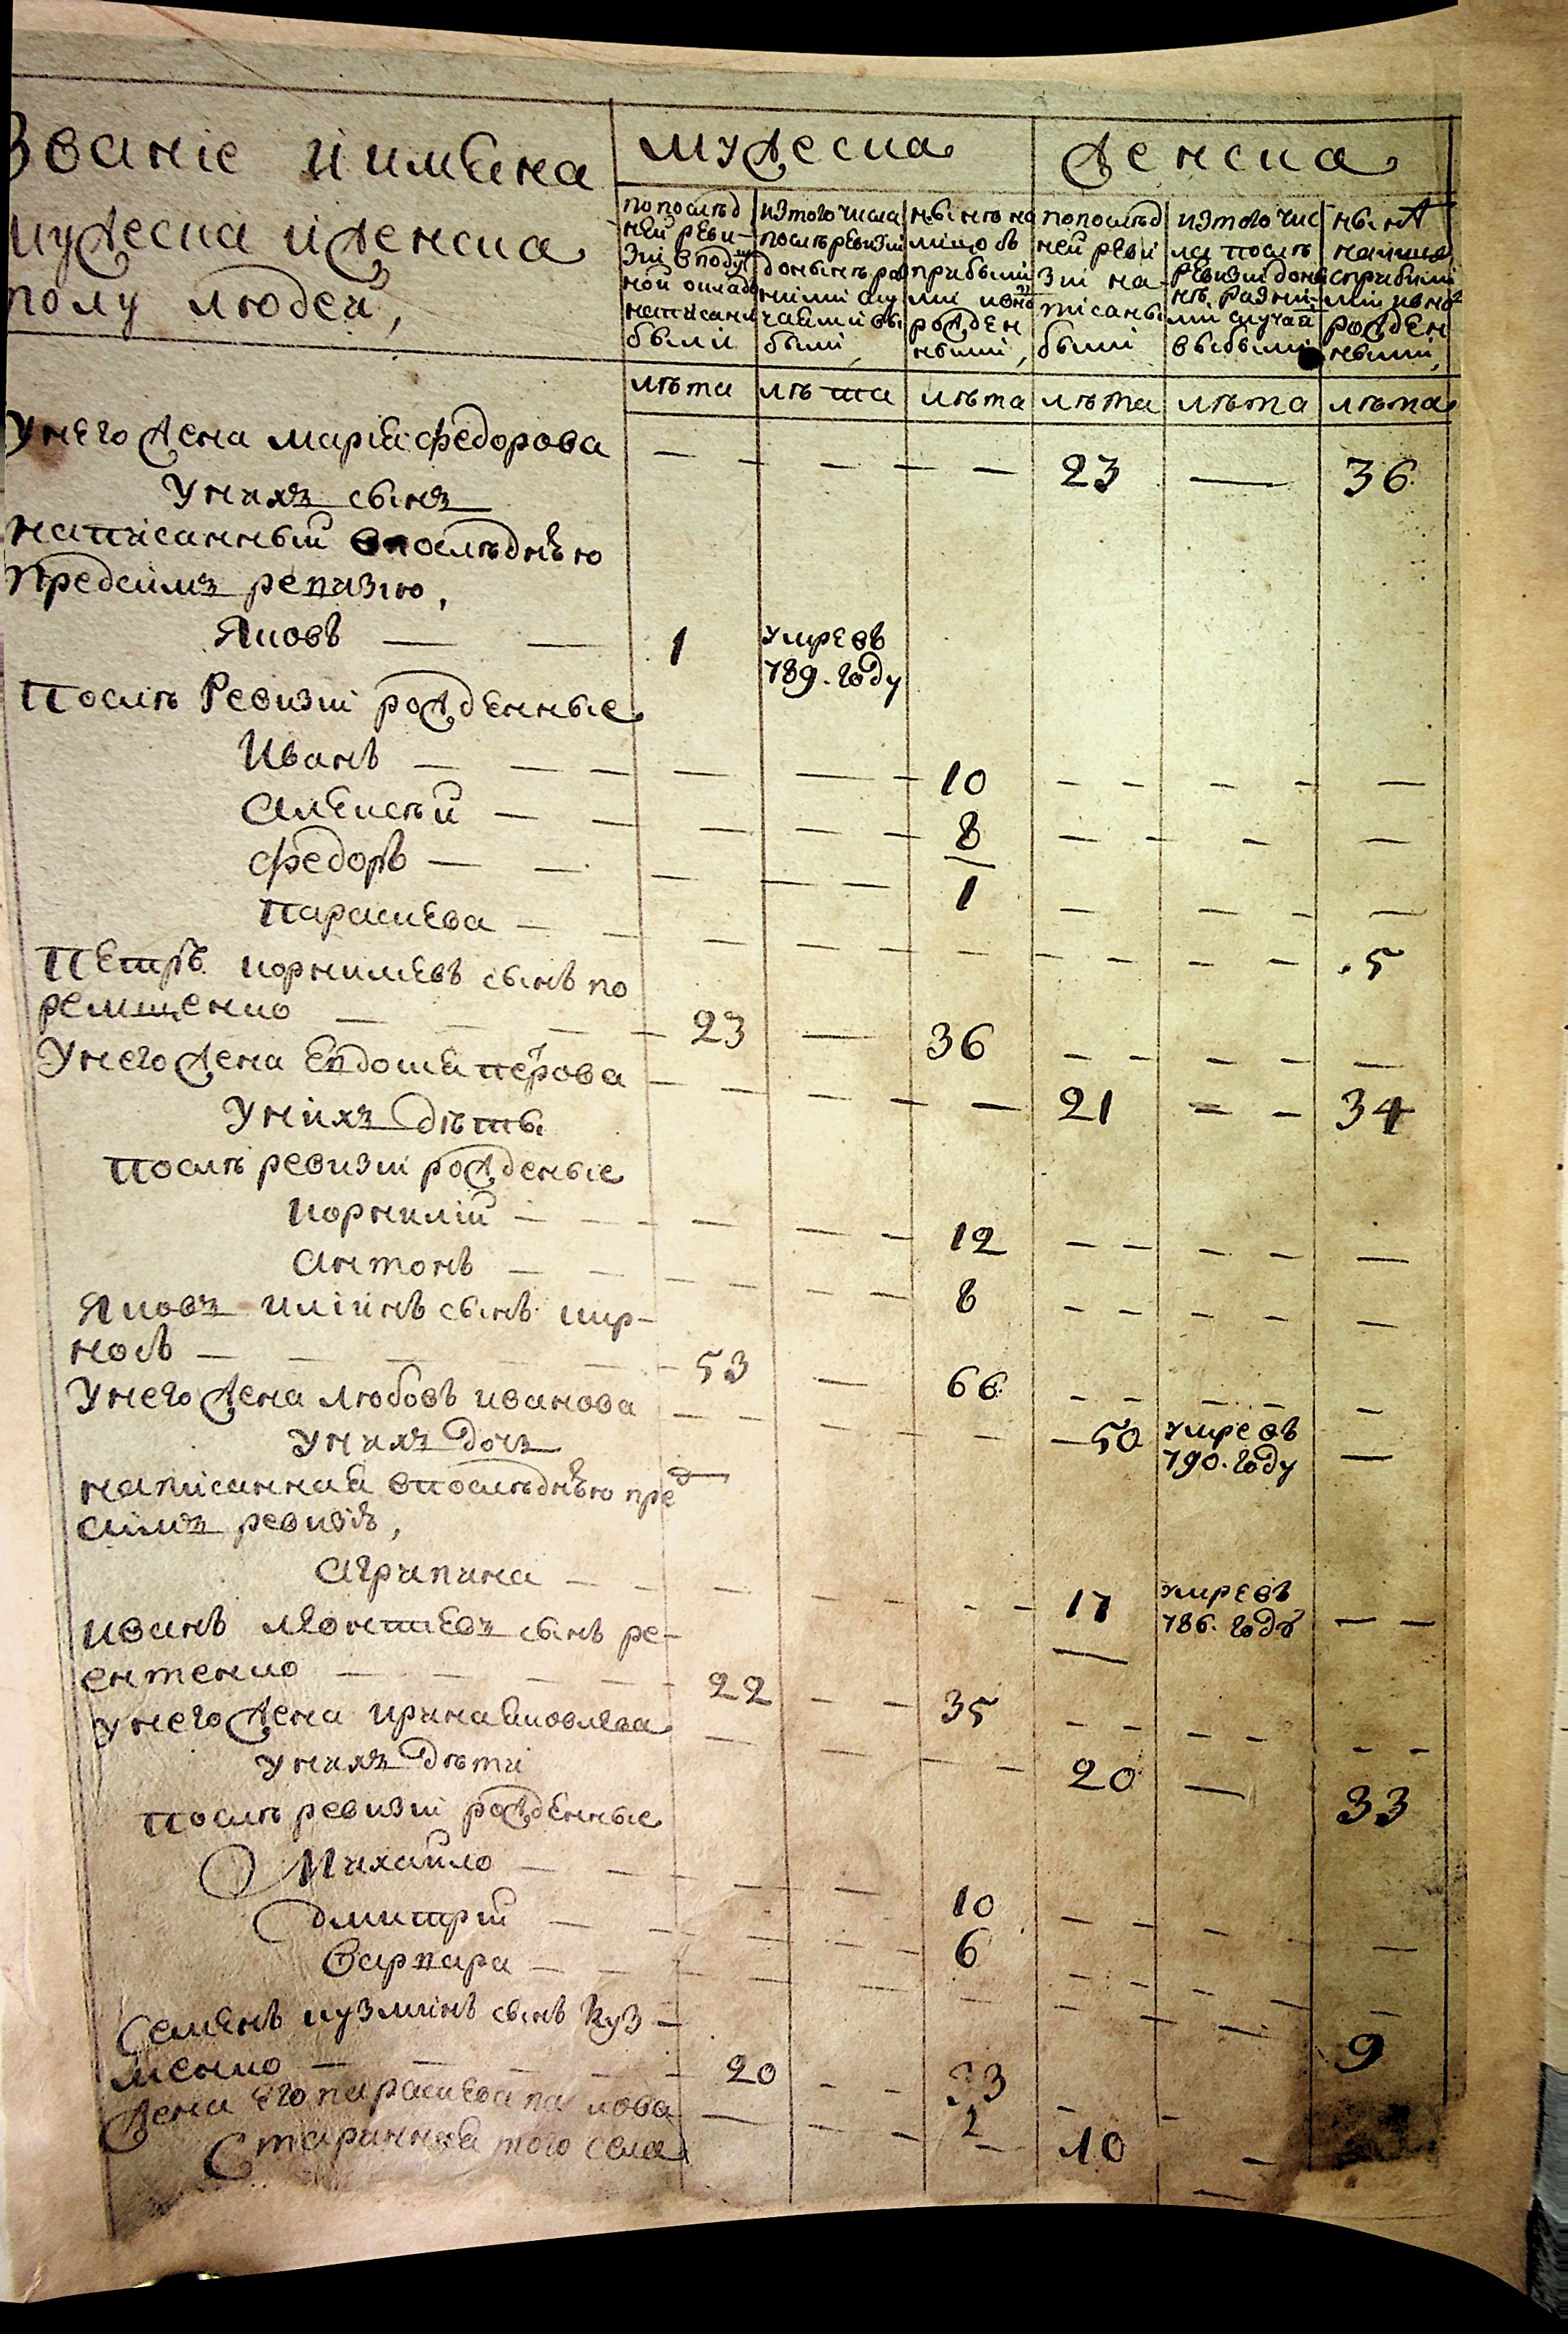 Званіе и имена
мужеска и женска
полу людей,
мужеска
женска
по послѣд
ней реви
зіи в поду
ной оклад
написаны
были
из того числа
послѣ ревизіи
до нынѣ раз
ними слу
чаями вы
были,
нынѣ на
лицо съ
прибыли
ми и вно
рожден
ными,
по послѣд
ней реви
зіи на
писаны
были
из того чис
ла послѣ
ревизіи до ны
нѣ разни
ми случаи
выбыли
нынѣ
на лице
с прибыли
ми и вно
рожден
ными,
лѣта лѣта лѣта лѣта лѣта лѣта
У него жена Марія Федорова — — — — — 23 — 36
У нихъ сынъ
написанный в послѣднѣю
предсимъ ревизію,
Яковъ — — 1 умревъ
789. году
Послѣ Ревизіи рожденные
Иванъ — — — — — — 10 — — — — —
Алексѣй — — — — — 8 — — — —
Федоръ — — — — — 1 — — — —
Параскева — — — — — — — — — — 5
Петръ Корниліевъ сынъ по
ремщенко — — — — 23 — 36 — — — — —
У него жена Евдокіа Петрова — — — — — 21 — — 34
У нихъ дѣты
Послѣ ревизіи рожденые
Корнилій — — — — — — 12 — — — — —
Антонъ — — — — — — 8 — — — — —
Яковъ Иліинъ сынъ кир-
носъ — — — — — 53 — 66 — — — — —
У него жена Любовъ Иванова — — — — — — 50 умревъ
790. году —
У нихъ дочъ
написанная в послѣднѣю пред
симъ ревизіѣ,
Агрипина — — — — — — — 17 умревъ
786. годѹ — —
Иванъ Леонтіевъ сынъ ре-
ентенко — — — — — 22 — — 35 — — — — — —
У него жена Ирина Яковлева — — — — 20 — 33
У нихъ дѣти
Послѣ ревизіи рожденные
Михайло — — — — 10 — — — —
Дмитрій — — — — — 6 — — — —
Варвара — — — — — — — — — 9
Семенъ Кузминъ сынъ Куз-
менко — — — — 20 — — 33 — —
Жена его Параскева — — — — 10 — —
Старинная того села